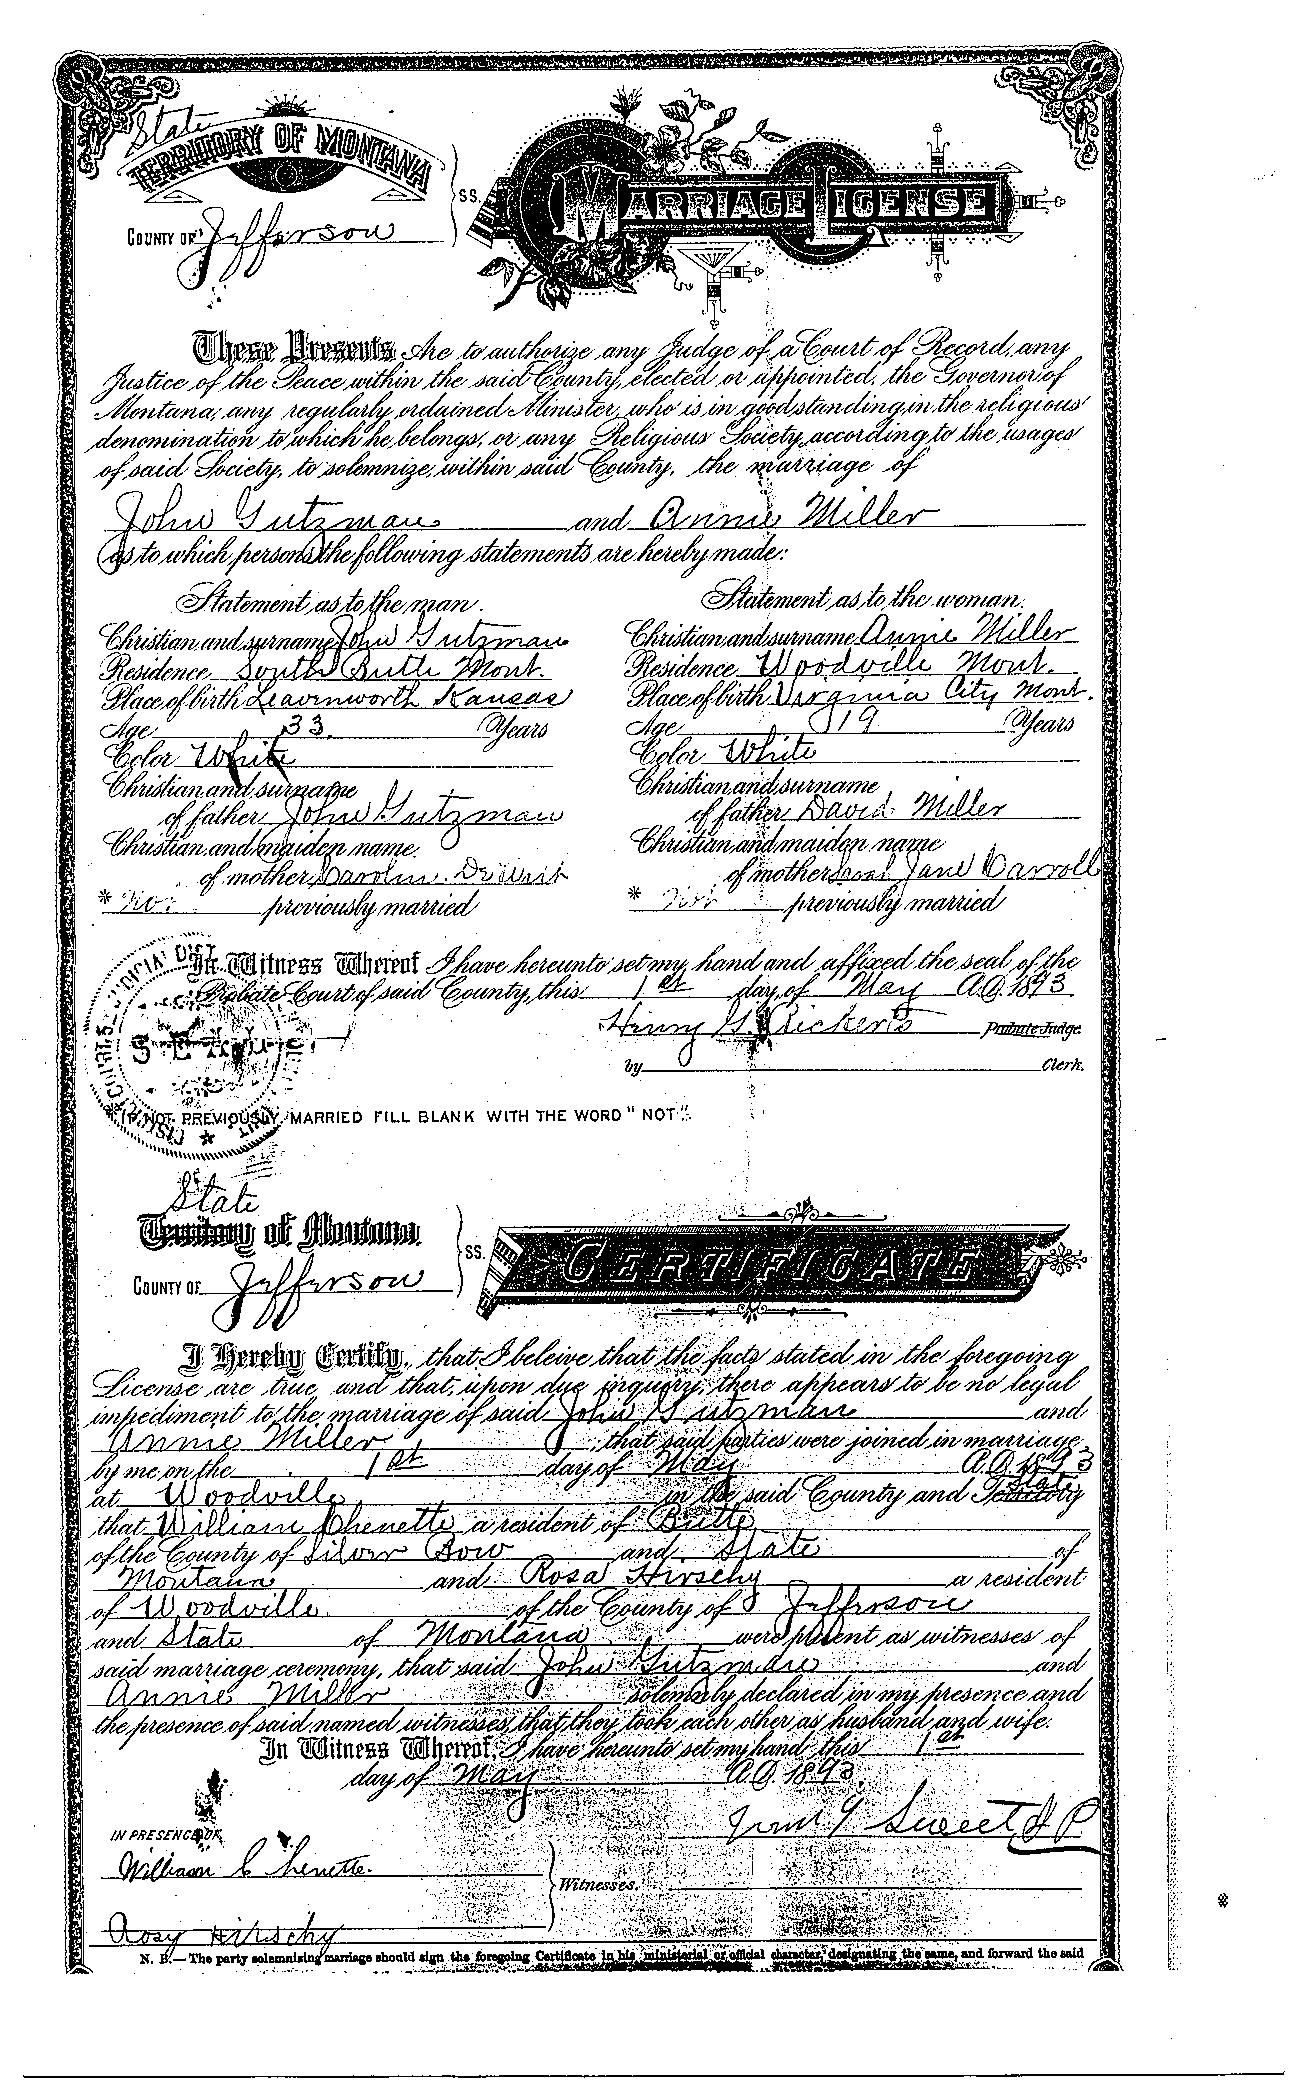 State
TERRITORY OF MONTANA
SS.
MARRIAGE LICENSE
COUNTY OF Jefferson
These Presents Are to authorize any Judge of a Court of Record, any
Justice of the Peace within the said County, elected or appointed, the Governor of
Montana, any regularly ordained Minister, who is in good standing in the religious
denomination to which he belongs, or any Religious Society, according to the usages
of said Society, to solemnize, within said County, the marriage of
John Gutzman and Annie Miller
as to which persons the following statements are hereby made:
Statement as to the man.
Christian and surname John Gutzman
Residence South Butte Mont.
Place of birth Leavinworth Kansas
Age 33 Years
Color White
Christian and surname
of father John Gutzman
Christian and maiden name
of mother Carolin
* Not previously married
Statement as to the woman.
Christian and surname Annie Miller
Residence Woodville Mont.
Place of birth Virginia City Mont.
Age 19 Years
Color White
Christian and surname
of father David Miller
Christian and maiden name
of mother Jane Carroll
* Not previously married
In Witness Whereof I have hereunto set my hand and affixed the seal of the
Probate Court of said County, this 1st day of May A.D. 1893
Henry G. Rickerts Probate Judge
by Clerk.
SEAL
* IF NOT PREVIOUSLY MARRIED FILL BLANK WITH THE WORD "NOT".
State
Territory of Montana
SS.
CERTIFICATE
COUNTY OF Jefferson
I Hereby Certify, that I beleive that the facts stated in the foregoing
License are true, and that, upon due inquiry, there appears to be no legal
impediment to the marriage of said John Gutzman and
Annie Miller, that said parties were joined in marriage
by me on the 1st day of May A.D. 1893
at Woodville in the said County and Territory State
that William Chenette a resident of Butte
of the County of Silver Bow and State of
Montana and Rosa Hirschy a resident
of Woodville of the County of Jefferson
and State of Montana were present as witnesses of
said marriage ceremony, that said John Gutzman and
Annie Miller solemnly declared in my presence and
the presence of said named witnesses, that they took each other as husband and wife.
In Witness Whereof, I have hereunto set my hand this 1st
day of May A.D. 1893.
Sweet J.P.
IN PRESENCE OF
William Chenette.
Witnesses.
Rosy Hirschy
N. B.—The party solemnizing marriage should sign the foregoing Certificate in his ministerial or official character, designating the same, and forward the said